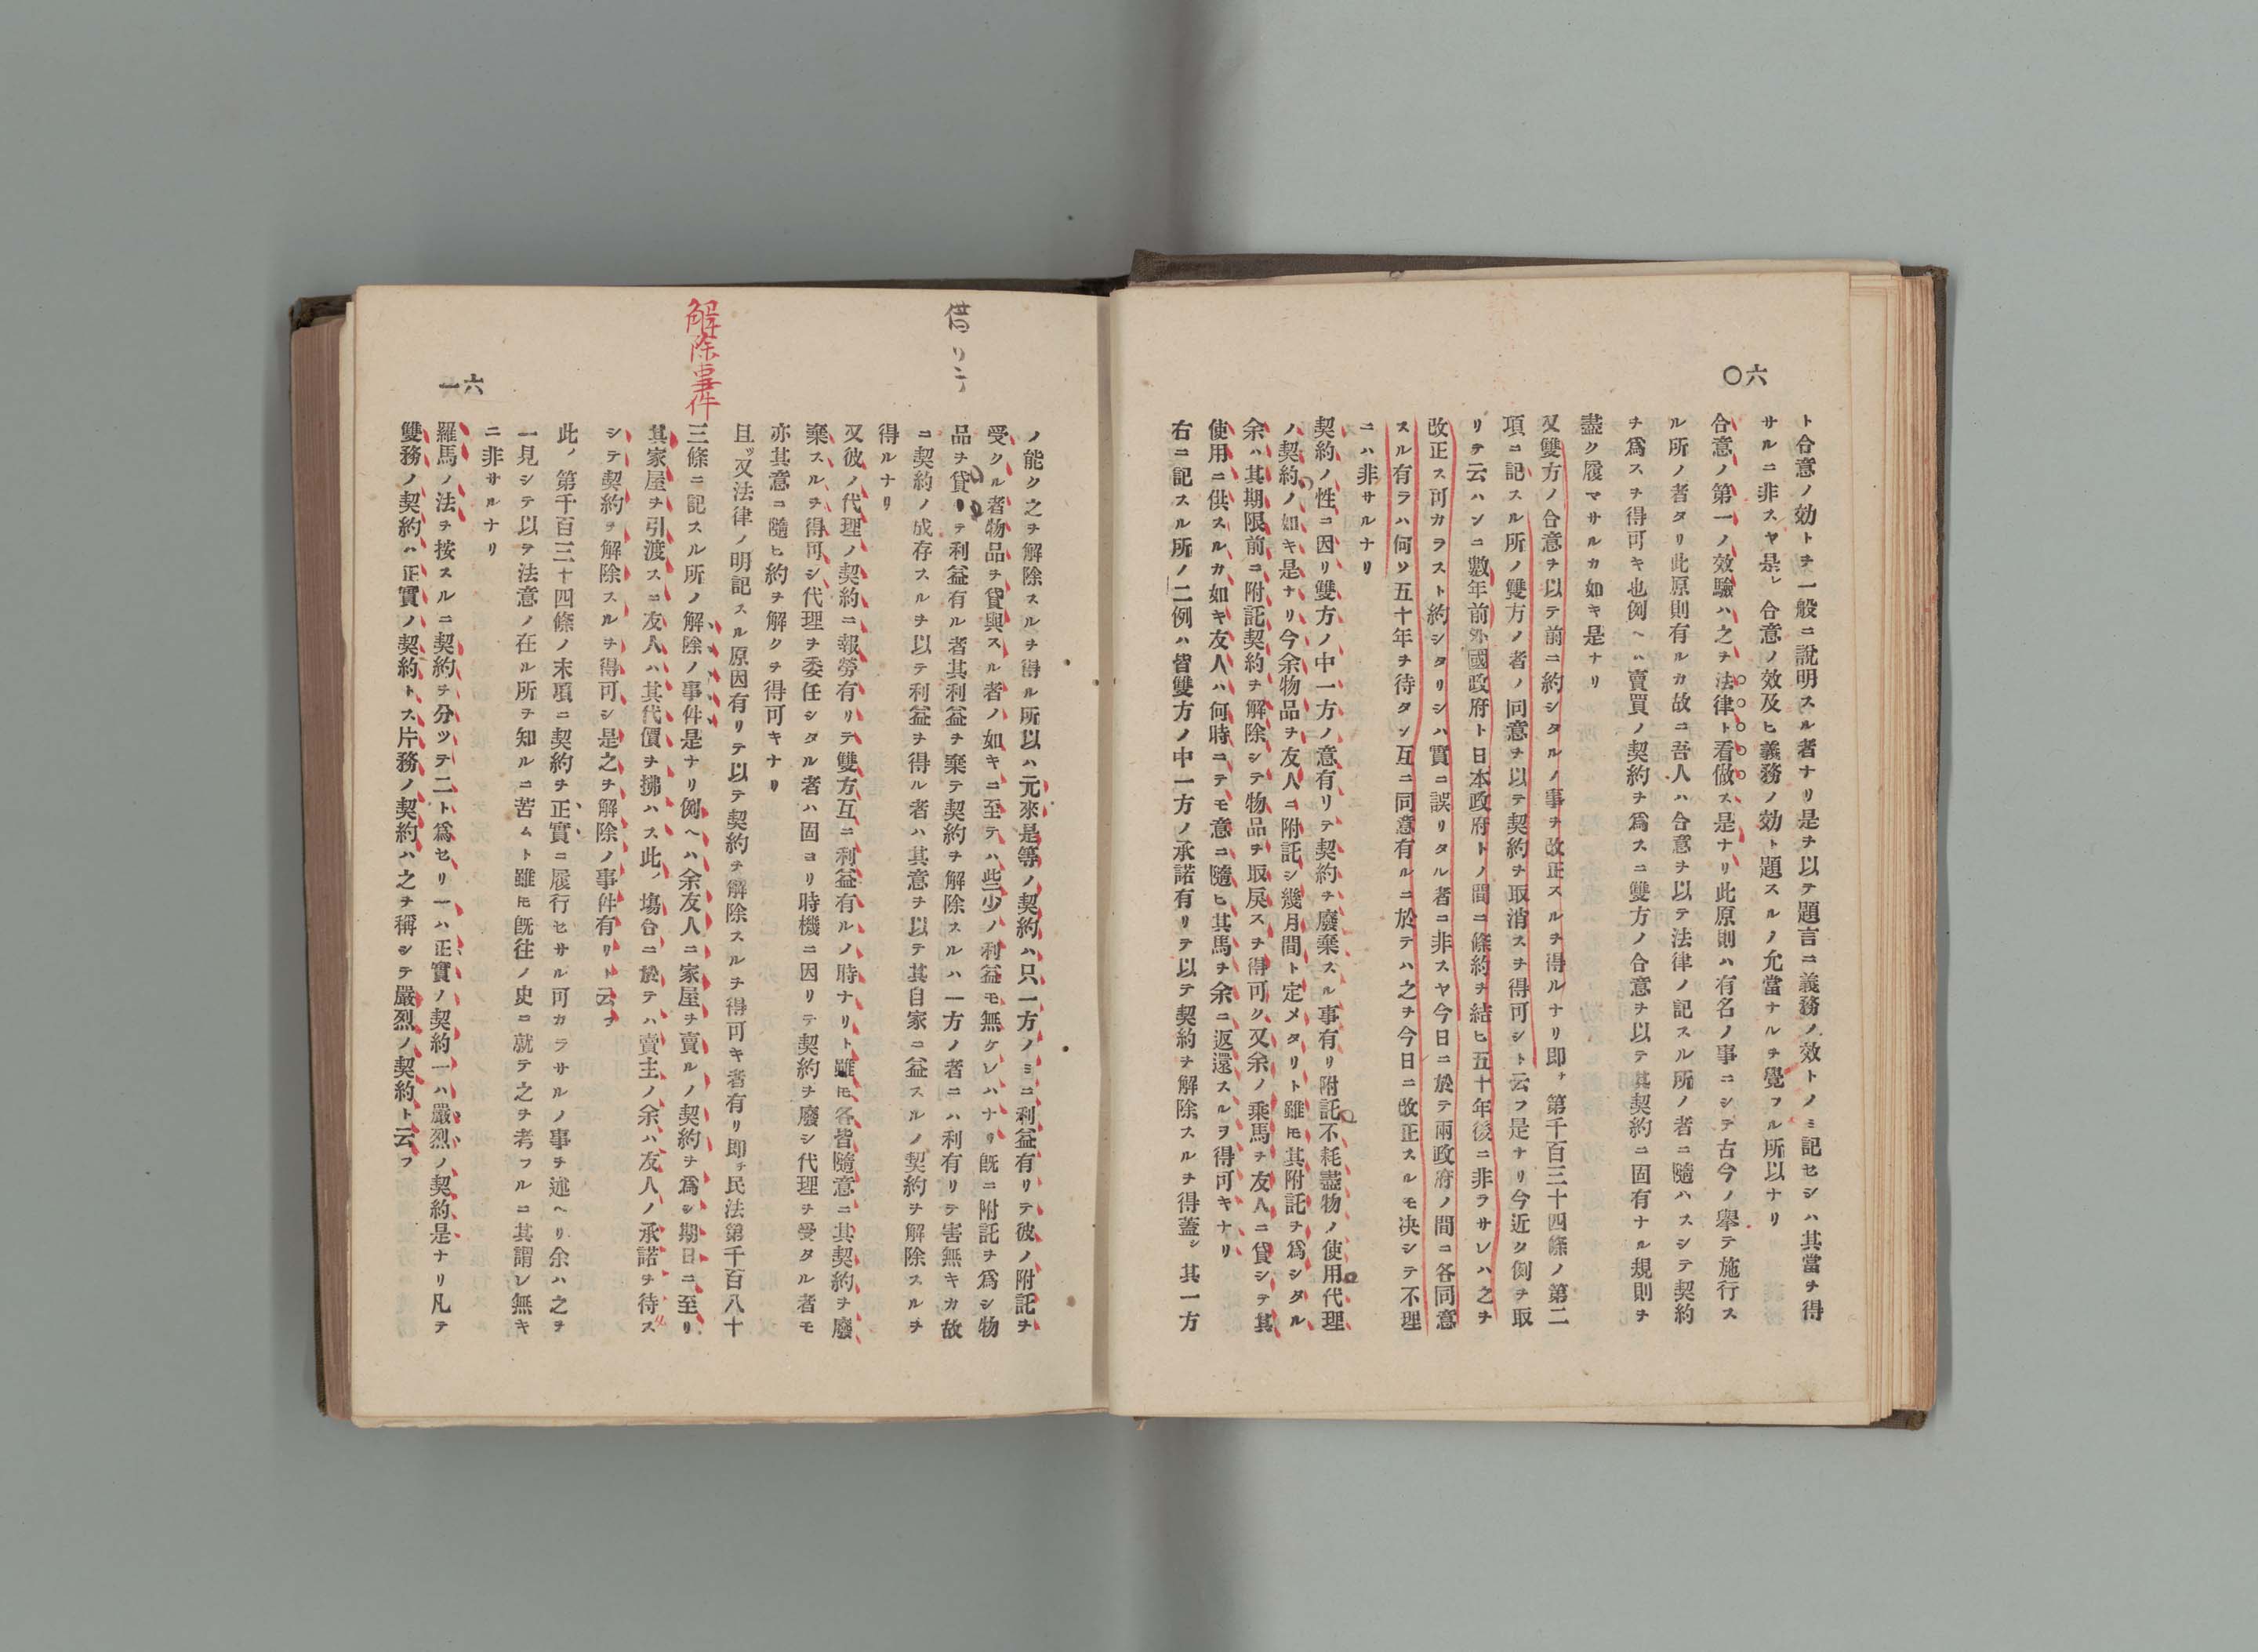 六〇
ト合意ノ効トヲ一般ニ說明スル者ナリ是ヲ以テ題言ニ義務ノ效トノミ記セシハ其當ヲ得
サルニ非スヤ是レ合意ノ效及ヒ義務ノ効ト題スルノ允當ナルヲ覺フル所以ナリ
合意ノ第一ノ效驗ハ之ヲ法律ト看做ス是ナリ此原則ハ有名ノ事ニシテ古今ノ擧テ施行ス
ル所ノ者タリ此原則有ルカ故ニ吾人ハ合意ヲ以テ法律ノ記スル所ノ者ニ隨ハスシテ契約
ヲ爲スヲ得可キ也例ヘハ賣買ノ契約ヲ爲スニ雙方ノ合意ヲ以テ其契約ニ固有ナル規則ヲ
盡ク履マサルカ如キ是ナリ
又雙方ノ合意ヲ以テ前ニ約シタルノ事ヲ改正スルヲ得ルナリ即チ第千百三十四條ノ第二
項ニ記スル所ノ雙方ノ者ノ同意ヲ以テ契約ヲ取消スヲ得可シト云フ是ナリ今近ク例ヲ取
リテ云ハンニ數年前外國政府ト日本政府トノ間ニ條約ヲ結ヒ五十年後ニ非ラサレハ之ヲ
改正ス可カラスト約シタリシハ實ニ誤リタル者ニ非スヤ今日ニ於テ兩政府ノ間ニ各同意
スル有ラハ何ソ五十年ヲ待タン互ニ同意有ルニ於テハ之ヲ今日ニ改正スルモ决シテ不理
ニハ非サルナリ
契約ノ性ニ因リ雙方ノ中一方ノ意有リテ契約ヲ廢棄スル事有リ附託不耗盡物ノ使用代理
ノ契約ノ如キ是ナリ今余物品ヲ友人ニ附託シ幾月間ト定メタリト雖𪜈其附託ヲ爲シタル
余ハ其期限前ニ附託契約ヲ解除シテ物品ヲ取戻スヲ得可ク又余ノ乘馬ヲ友人ニ貸シテ其
使用ニ供スルカ如キ友人ハ何時ニテモ意ニ隨ヒ其馬ヲ余ニ返還スルヲ得可キナリ
右ニ記スル所ノ二例ハ皆雙方ノ中一方ノ承諾有リテ以テ契約ヲ解除スルヲ得蓋シ其一方
六一
借リテ
解除事件
ノ能ク之ヲ解除スルヲ得ル所以ハ元來是等ノ契約ハ只一方ノミニ利益有リテ彼ノ附託ヲ
受クル者物品ヲ貸與スル者ノ如キニ至テハ些少ノ利益モ無ケレハナリ既ニ附託ヲ爲シ物
品ヲ貸リテ利益有ル者其利益ヲ棄テ契約ヲ解除スルハ一方ノ者ニハ利有リテ害無キカ故
ニ契約ノ成存スルヲ以テ利益ヲ得ル者ハ其意ヲ以テ其自家ニ益スルノ契約ヲ解除スルヲ
得ルナリ
又彼ノ代理ノ契約ニ報勞有リテ雙方互ニ利益有ルノ時ナリト雖𪜈各皆隨意ニ其契約ヲ廢
棄スルヲ得可シ代理ヲ委任シタル者ハ固ヨリ時機ニ因リテ契約ヲ廢シ代理ヲ受タル者モ
亦其意ニ隨ヒ約ヲ解クヲ得可キナリ
且ツ又法律ノ明記スル原因有リテ以テ契約ヲ解除スルヲ得可キ者有リ即チ民法第千百八十
三條ニ記スル所ノ解除ノ事件是ナリ例ヘハ余友人ニ家屋ヲ賣ルノ契約ヲ爲シ期日ニ至リ
其家屋ヲ引渡スニ友人ハ其代價ヲ拂ハス此ノ塲合ニ於テハ賣主ノ余ハ友人ノ承諾ヲ待ス
シテ契約ヲ解除スルヲ得可シ是之ヲ解除ノ事件有リト云フ
此ノ第千百三十四條ノ末項ニ契約ヲ正實ニ履行セサル可カラサルノ事ヲ述ヘリ余ハ之ヲ
一見シテ以テ法意ノ在ル所ヲ知ルニ苦ムト雖𪜈既往ノ史ニ就テ之ヲ考フルニ其謂レ無キ
ニ非サルナリ
羅馬ノ法ヲ按スルニ契約ヲ分ツテ二ト爲セリ一ハ正實ノ契約一ハ嚴烈ノ契約是ナリ凡テ
雙務ノ契約ハ正實ノ契約トス片務ノ契約ハ之ヲ稱シテ嚴烈ノ契約ト云フ